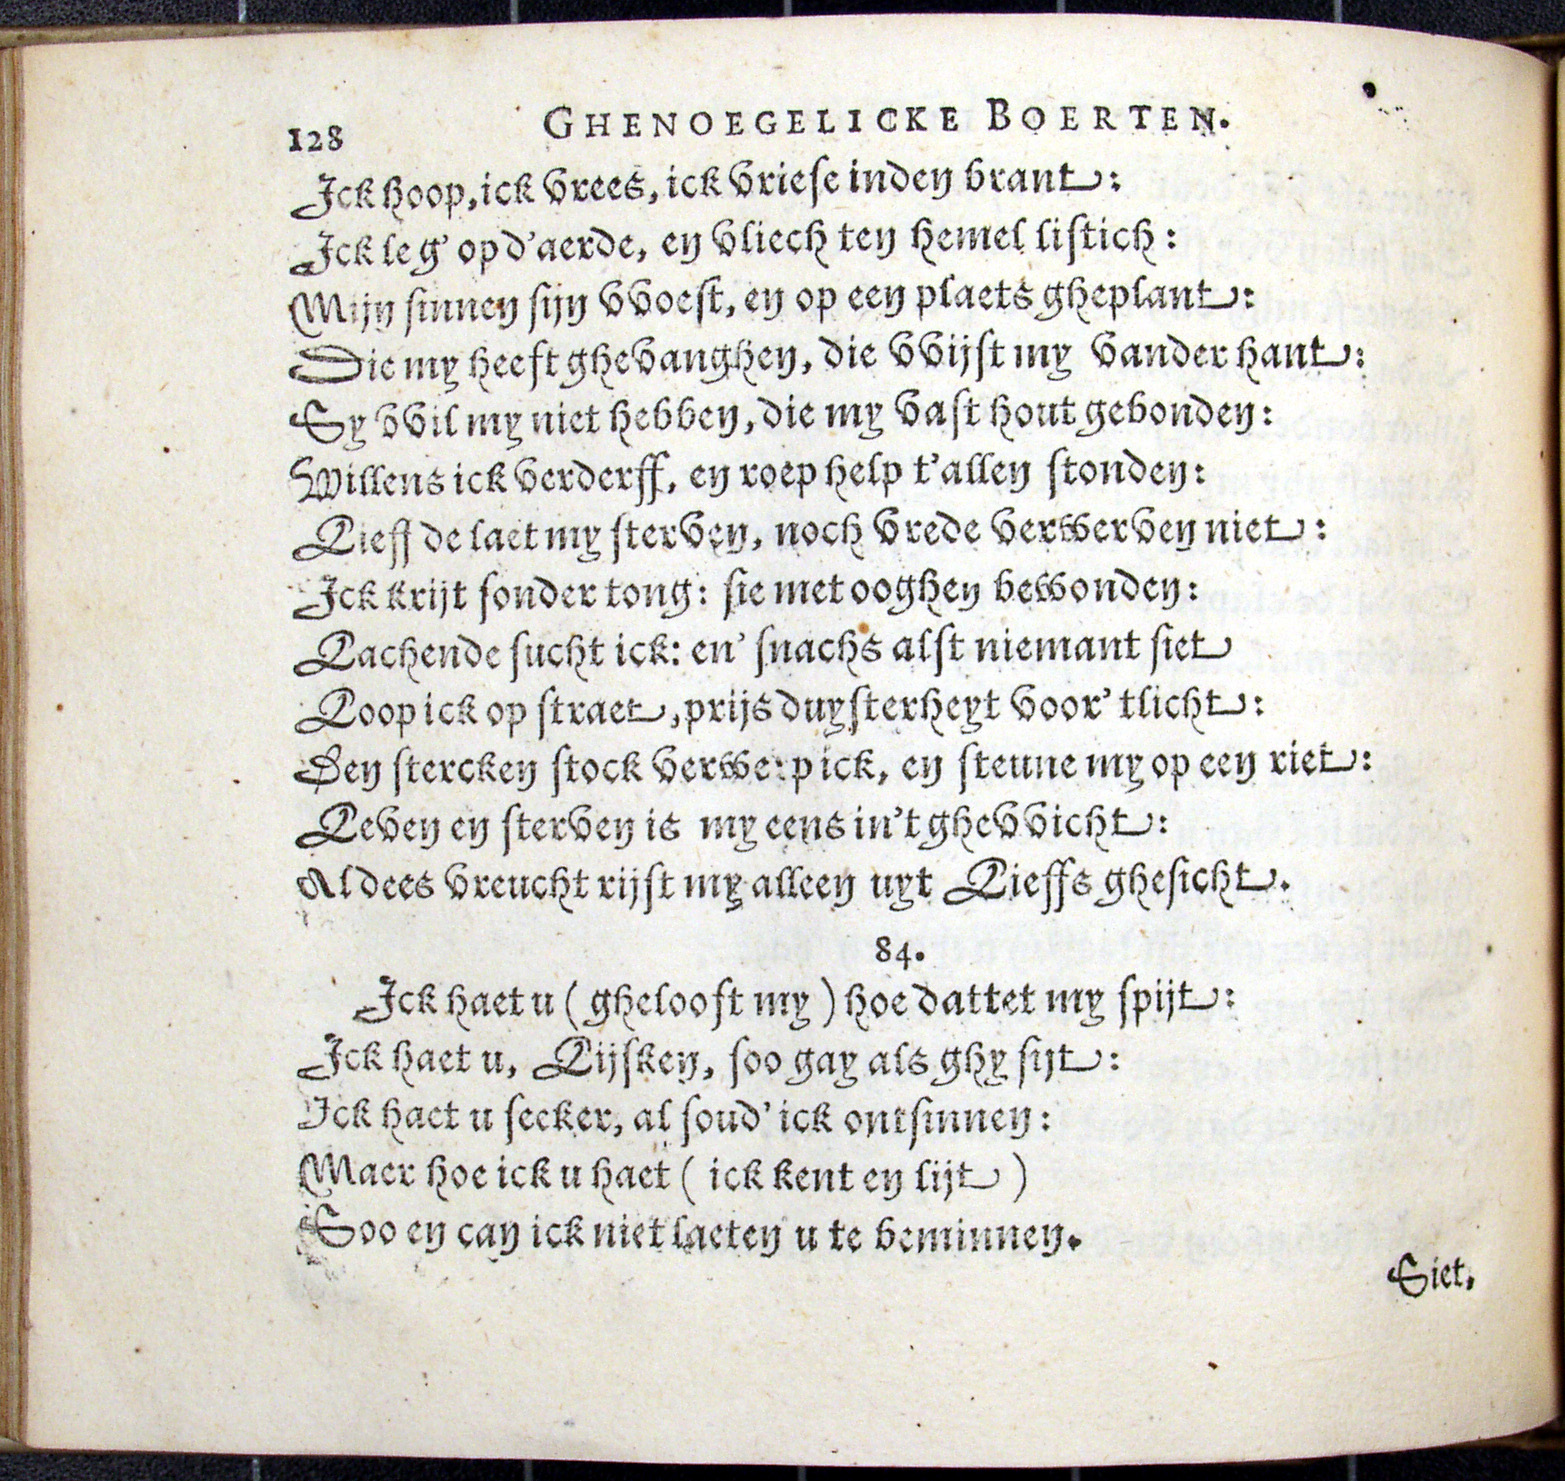 128 GHENOEGELICKE BOERTEN.
Ick hoop, ick vrees, ick vriese inden brant:
Ick leg' op d'aerde, en vliech ten hemel listich:
Mijn sinnen sijn vvoest, en op een plaets gheplant:
Die my heeft ghevanghen, die vvijst my vander hant:
Sy vvil my niet hebben, die my vast hout gebonden:
Willens ick verderff, en roep help t'allen stonden:
Lieff de laet my sterven, noch vrede verwerven niet:
Ick krijt sonder tong: sie met ooghen bewonden:
Lachende sucht ick: en' snachs alst niemant siet
Loop ick op straet, prijs duysterheyt voor' tlicht:
Den stercken stock verwerp ick, en steune my op een riet:
Leven en sterven is my eens in't ghevvicht:
Al dees vreucht rijst my alleen uyt Lieffs ghesicht.
84.
Ick haet u (ghelooft my) hoe dattet my spijt:
Ick haet u, Lijsken, soo gay als ghy sijt:
Ick haet u seeker, al soud' ick ontsinnen:
Maer hoe ick u haet (ick kent en lijt)
Soo en can ick niet laeten u te beminnen.
Siet,